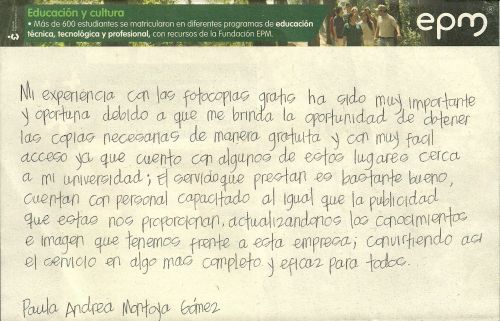 Educación y cultura
• Más de 600 estudiantes se matricularon en diferentes programas de educación
técnica, tecnológica y profesional, con recursos de la Fundación EPM.
epm
Mi experiencia con las fotocopias gratis ha sido muy importante
y oportuna debido a que me brinda la oportunidad de obtener
las copias necesarias de manera gratuita y con muy facil
acceso ya que cuento con algunos de estos lugares cerca
a mi universidad; El servicio que prestan es bastante bueno,
cuentan con personal capacitado al igual que la publicidad
que estas nos proporcionan, actualizandonos los conocimientos
e imagen que tenemos frente a esta empresa; convirtiendo asi
el servicio en algo mas completo y eficaz para todos.
Paula Andrea Montoya Gómez